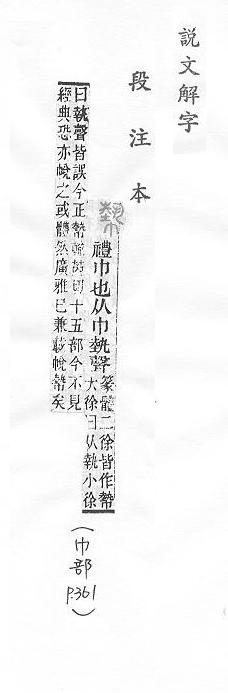 説文解字
段注本
禮巾也从巾埶聲
篆體二徐皆作㡇
大徐曰从執小徐
曰執聲皆誤今正 輸芮切十五部今不見
經典恐亦帨之或體然廣雅已兼載帨 矣
(巾部
P.361)